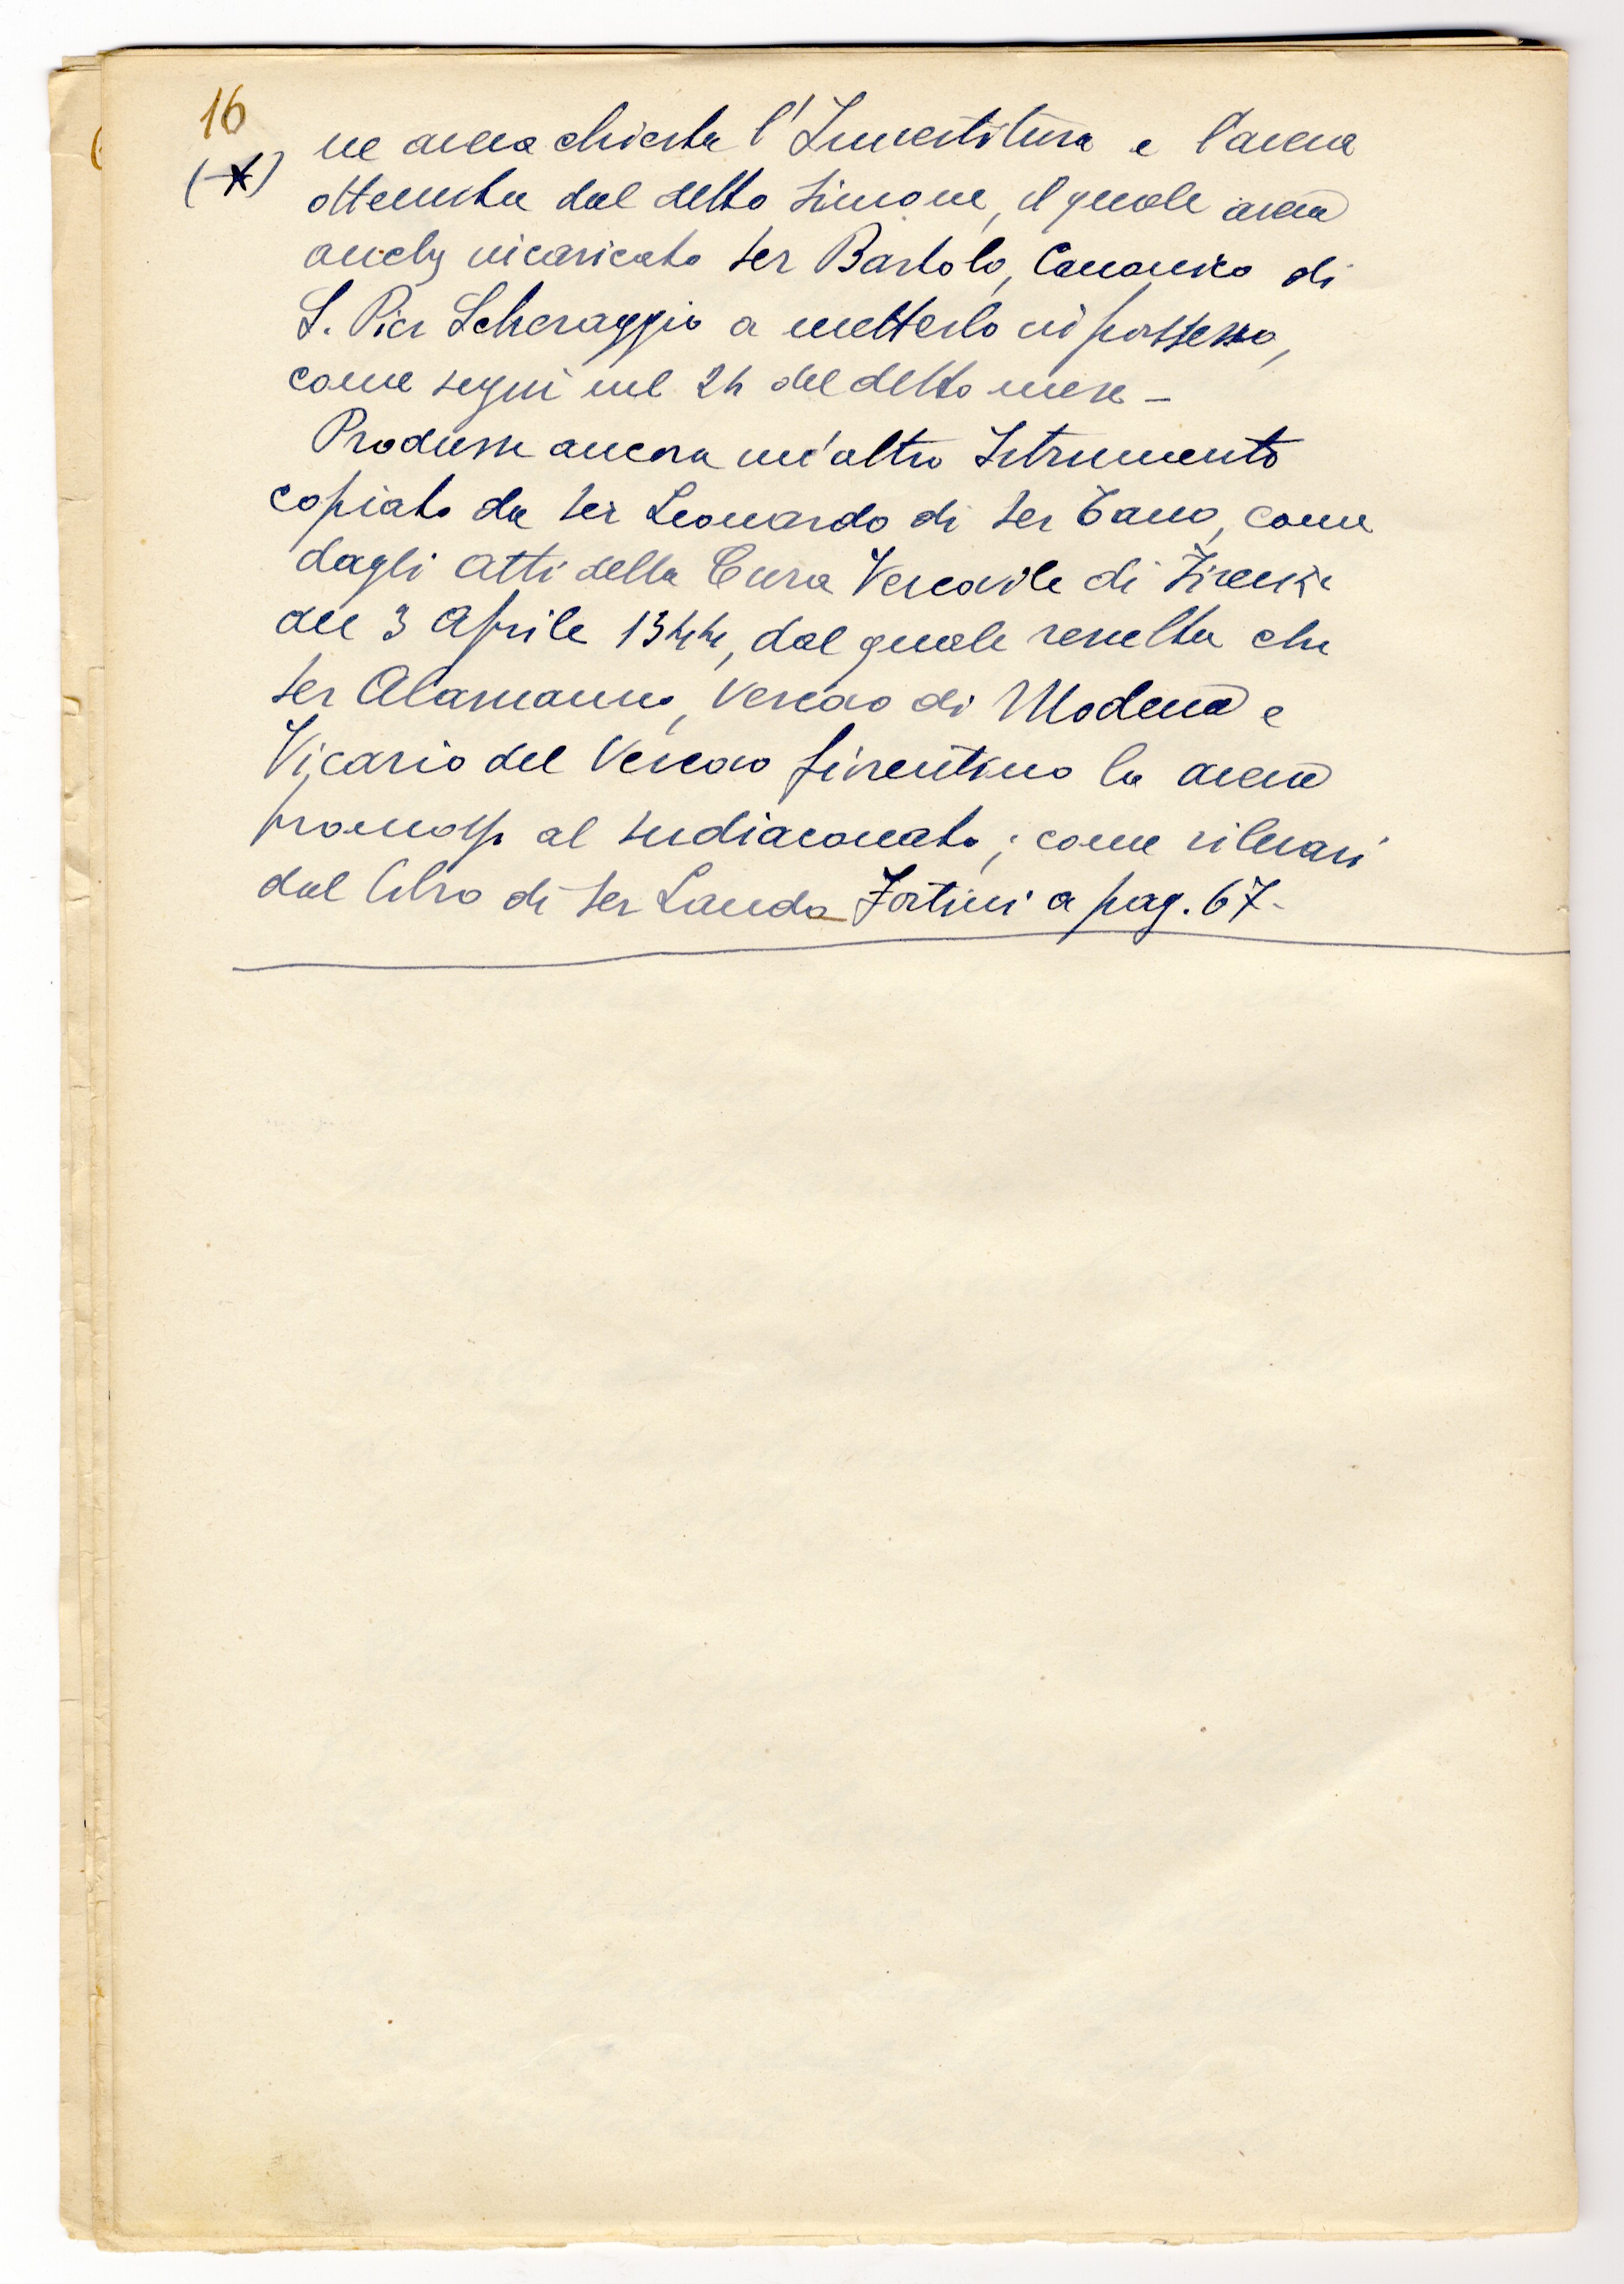 16
(x) ne aveva chiesta l'Investitura e l'aveva
ottenuta dal detto Simone, il quale aveva
anche incaricato ser Bartolo, Canonico di
S. Pier Scheraggio a metterlo in possesso,
come seguì nel 24 del detto mese –
Produsse ancora un'altro Istrumento
copiato da ser Leonardo di ser Tano, come
dagli atti della Curia Vescovile di Firenze
del 3 Aprile 1344, dal quale resulta che
ser Alamanno, Vescovo di Modena e
Vicario del Vescovo fiorentino lo aveva
promosso al sudiaconato; come rilevasi
dal libro di ser Lando Fortini a pag. 67-